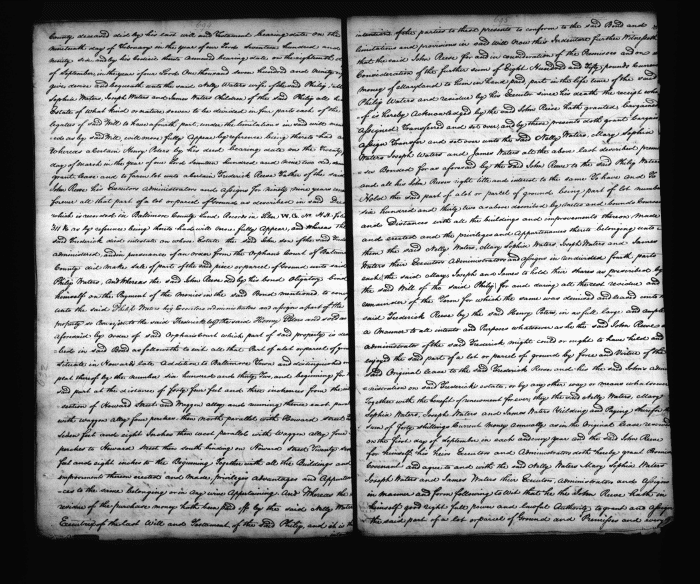 County deceased did by his last will and Testament bearing date on the
nineteenth day of February in the year of our Lord Seventeen hundred and
ninety six and by his codicil thereto Annexed bearing date on the eighteenth
of September in the year of our Lord One thousand seven hundred and ninety
gives devises and bequeaths unto the said Nelly Waters wife of the said Philip
Sophia Waters, Joseph Waters and James Waters Children of the said Philip all his
Estate of what kind or nature soever to be divided in four parts each of the
legatees of said Will to have a fourth part under the limitations in said will
as by said Will, will more fully Appear by reference being thereto had
Whereas a certain Henry Peters by his deed bearing date on the twenty
day of March in the year of our Lord Seventeen hundred and nine
grant lease and to farm let unto a certain Frederick Reese Father of the said
John Reese his Executors Administrators and Assigns for ninety nine years
all that part of a lot or parcel of Ground as described in said deed
which is recorded in Baltimore County land Records in Liber W.G. No.
as by reference being thereto had will more fully appear, and Whereas the
said Frederick died intestate on whose Estate the said John son of the said Frederick
administered, and in pursuance of an order from the Orphans Court of Baltimore
County did make sale of part of the said piece or parcel of Ground unto said
Philip Waters, And Whereas the said John Reese did by his bond obligatory bind
himself on the Payment of the Monies in the said Bond mentioned to
unto the said Philip Waters his Executors administrators and assigns a part of the
property so conveyed to the said Frederick by the said Henry Peters and sold as
aforesaid by order of said Orphans Court which part of said property is
in said Bond as followeth to wit all that Part of a lot or parcel of ground
situate in Howards late Addition to Baltimore Town and distinguished
plat thereof by the number six hundred and thirty two, and beginning for
said part at the distance of forty four feet and three inches from the
section of Howard Street and Waggon alley and running thence and
with waggon alley four perches then north parallel with Howard street
feet and eight Inches then west parallel with Waggon alley four
perches to Howard Street then south binding on Howard Street twenty
feet and eight inches to the Beginning Together with all the Buildings and
improvements thereon erected and Made, privileges advantages and
to the same belonging or in any wise Appertaining. And Whereas the
residue of the purchase money hath been paid off by the said Nelly Waters
Executrix of the last Will and Testament of the said Philip, and it is the
695
intention of the parties to these presents to conform to the said Bond and
limitations and provisions in said will Now this Indenture further Witnesseth
that the said John Reese for and in consideration of the Premises and
Consideration of the further sum of Eight hundred and fifty pounds Current
Money of Maryland to him in hand paid in part in the life time of the said
Philip Waters and residue by his Executrix since his death the receipt
of is hereby Acknowledged by the said John Reese hath granted bargained
Assigned Transferred and set over, and by these presents doth grant bargain
Assign Transfer and set over unto the said Nelly Waters, Mary Sophia
Waters Joseph Waters and James Waters all the above last described
so Bonded for as aforesaid by the said John Reese to the said Philip Waters
and all his John Reeses right title and interest to the same To have and To
Hold the said part of a lot or parcel of ground being part of lot number
six hundred and thirty two as above described by metes and bounds Courses
and Distances with all the buildings and improvements thereon Made
and erected and the privileges and Appurtenances thereto belonging unto
them the said Nelly Waters, Mary Sophia Waters Joseph Waters and James
Waters their Executors Administrators and assigns in undivided fourth parts
each, the said Mary, Joseph and James to hold their shares as prescribed by
the said Will of the said Philip for and during all the rest residue and
remainder of the Term for which the same was demised and leased unto
said Frederick Reese by the said Henry Peters, in as full large and ample
a Manner to all intents and Purposes whatsoever as he the said John Reese
administrator of the said Frederick might could or ought to have held and
enjoyed the said part of a lot or parcel of ground by force and Virtue of the
said Original Lease to the said Frederick Reese and his the said John's
administration on said Fredericks estate, or by any other ways or means whatsoever
Together with the benefit of renewment for ever they the said Nelly Waters, Mary
Sophia Waters, Joseph Waters and James Waters Yielding and Paying therefor the
sum of forty shillings Current Money annually as in the Original Lease reserved
on the first day of September in each and every year and the said John Reese
for himself, his heirs Executors and Administrators doth hereby grant Promise
Covenant and agree to and with the said Nelly Waters Mary Sophia Waters
Joseph Waters and James Waters their Executors Administrators and assigns
in manner and form following to Wit that he the said John Reese hath in
himself good right full power and lawful Authority to grant and assign
the said part of a lot or parcel of Ground and Premises and every